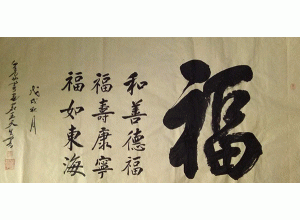 福
和善德福
福壽康寧
福如東海
戊戌秋月